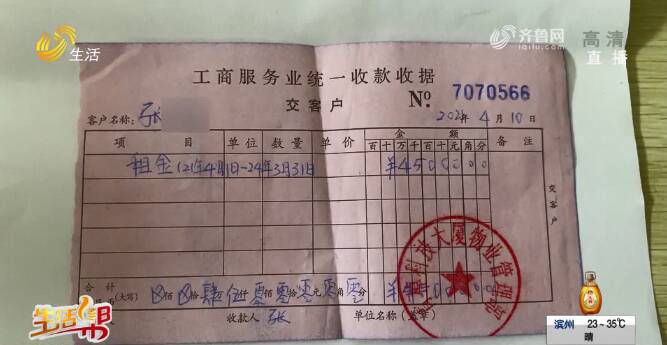 生活
齐鲁网
iqilu.com
高清
直播
工商服务业统一收款收据
交客户
№ 7070566
客户名称: 张
2021年4月10日
项目 单位 数量 单价 金额 备注
百十万千百十元角分
租金(21年4月1日-24年3月31日 ¥450000
交客户
合计
(大写) 佰 拾肆万伍仟零佰零拾零元零角零分
收款人 张 单位名称(盖章)
科技大厦物业管理
生活帮
滨州 23~35℃
晴